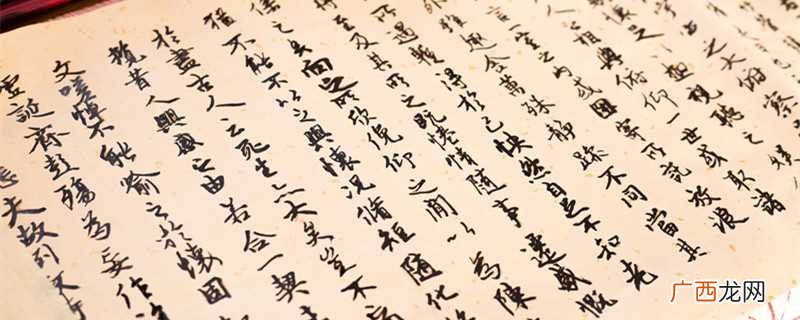 之大俯察
視聽之娛
人之相與俯仰一世或取諸
言一室之内或因寄所託放浪
雖趣舍萬殊靜躁不同當其
所遇暫得於己快然自足不知老
至及其所之既惓情隨事遷感慨
係之矣向之所欣俛仰之閒以為陳
猶不能不以之興懷況脩短隨化終
於盡古人云死生亦大矣豈不痛
攬昔人興感之由若合一契未
文嗟悼不能喻之於懷固
虛誕齊彭殤為妄作後
悲夫故列敘時
广西龙网